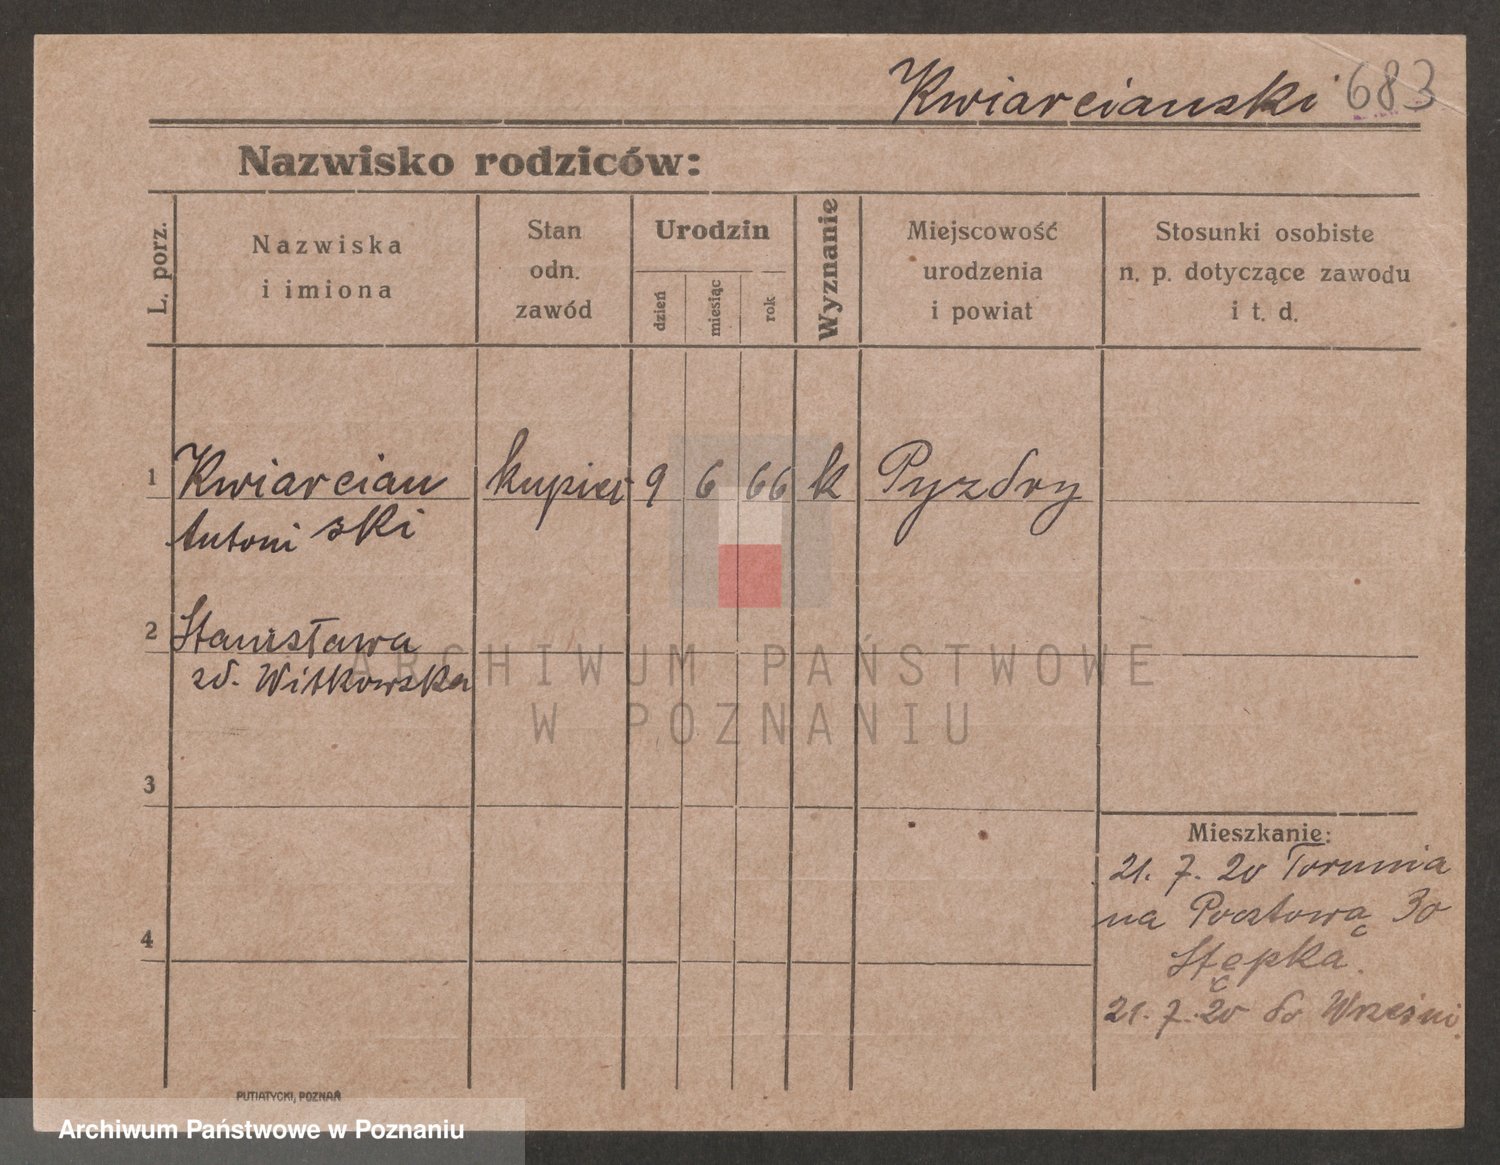 Kwiarcianski 683
Nazwisko rodziców:
L. porz.
Nazwiska
i imiona
Stan
odn.
zawód
Urodzin
dzień
miesiąc
rok
Wyznanie
Miejscowość
urodzenia
i powiat
Stosunki osobiste
n. p. dotyczące zawodu
i t. d.
1 Kwiarcian kupiec 9 6 66 k Pyzdry
Antoni ski
2 Stanisława
zd. Witkowska
ARCHIWUM PAŃSTWOWE
W POZNANIU
3
Mieszkanie:
21. 7. 20 Torunia
na Pocztową 30
Stępka
4
21. 7. 20 do Wrześni
PUTIATYCKI, POZNAŃ
Archiwum Państwowe w Poznaniu